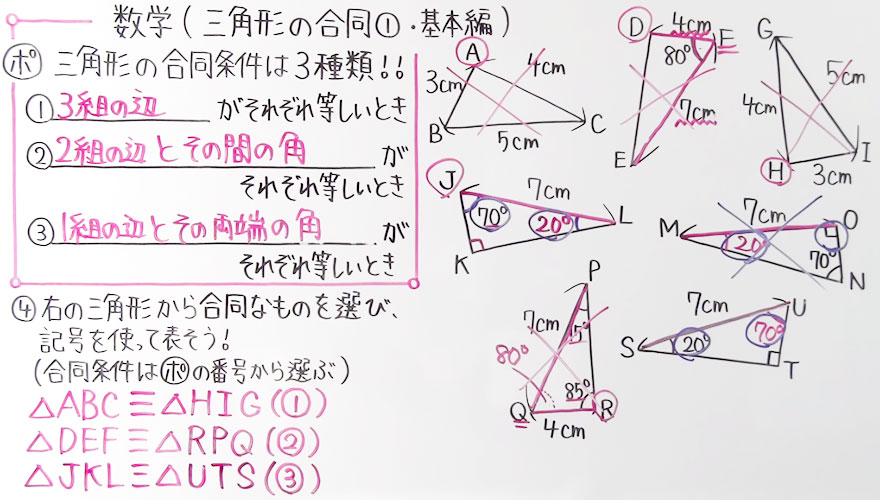 数学(三角形の合同①・基本編)
ポ 三角形の合同条件は3種類!!
① 3組の辺 がそれぞれ等しいとき
② 2組の辺とその間の角 が
それぞれ等しいとき
③ 1組の辺とその両端の角 が
それぞれ等しいとき
④ 右の三角形から合同なものを選び、
記号を使って表そう!
(合同条件はポの番号から選ぶ)
△ABC≡△HIG(①)
△DEF≡△RPQ(②)
△JKL≡△UTS(③)
A
3cm
4cm
B
C
5cm
D
4cm
F
80°
7cm
E
G
5cm
4cm
H
I
3cm
J
7cm
70°
20°
L
K
7cm
O
M
20°
70°
N
P
7cm
15°
80°
85°
Q
R
4cm
7cm
U
S
20°
70°
T